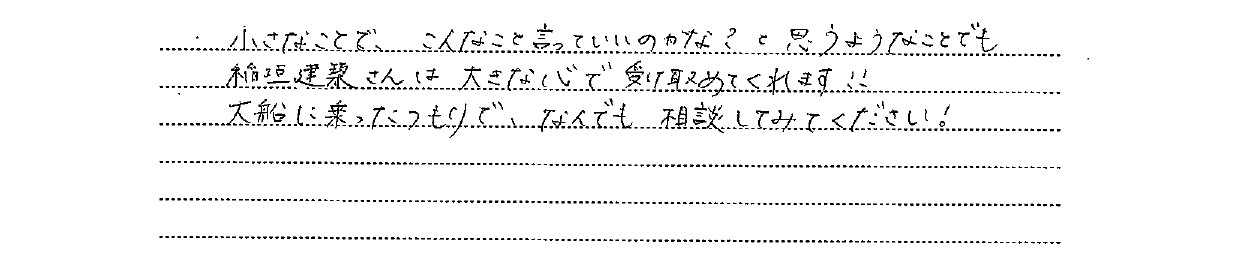 小さなことで、こんなこと言っていいのかな？と思うようなことでも
稲垣建築さんは大きな心で受け取めてくれます!!
大船に乗ったつもりで、なんでも相談してみてください!